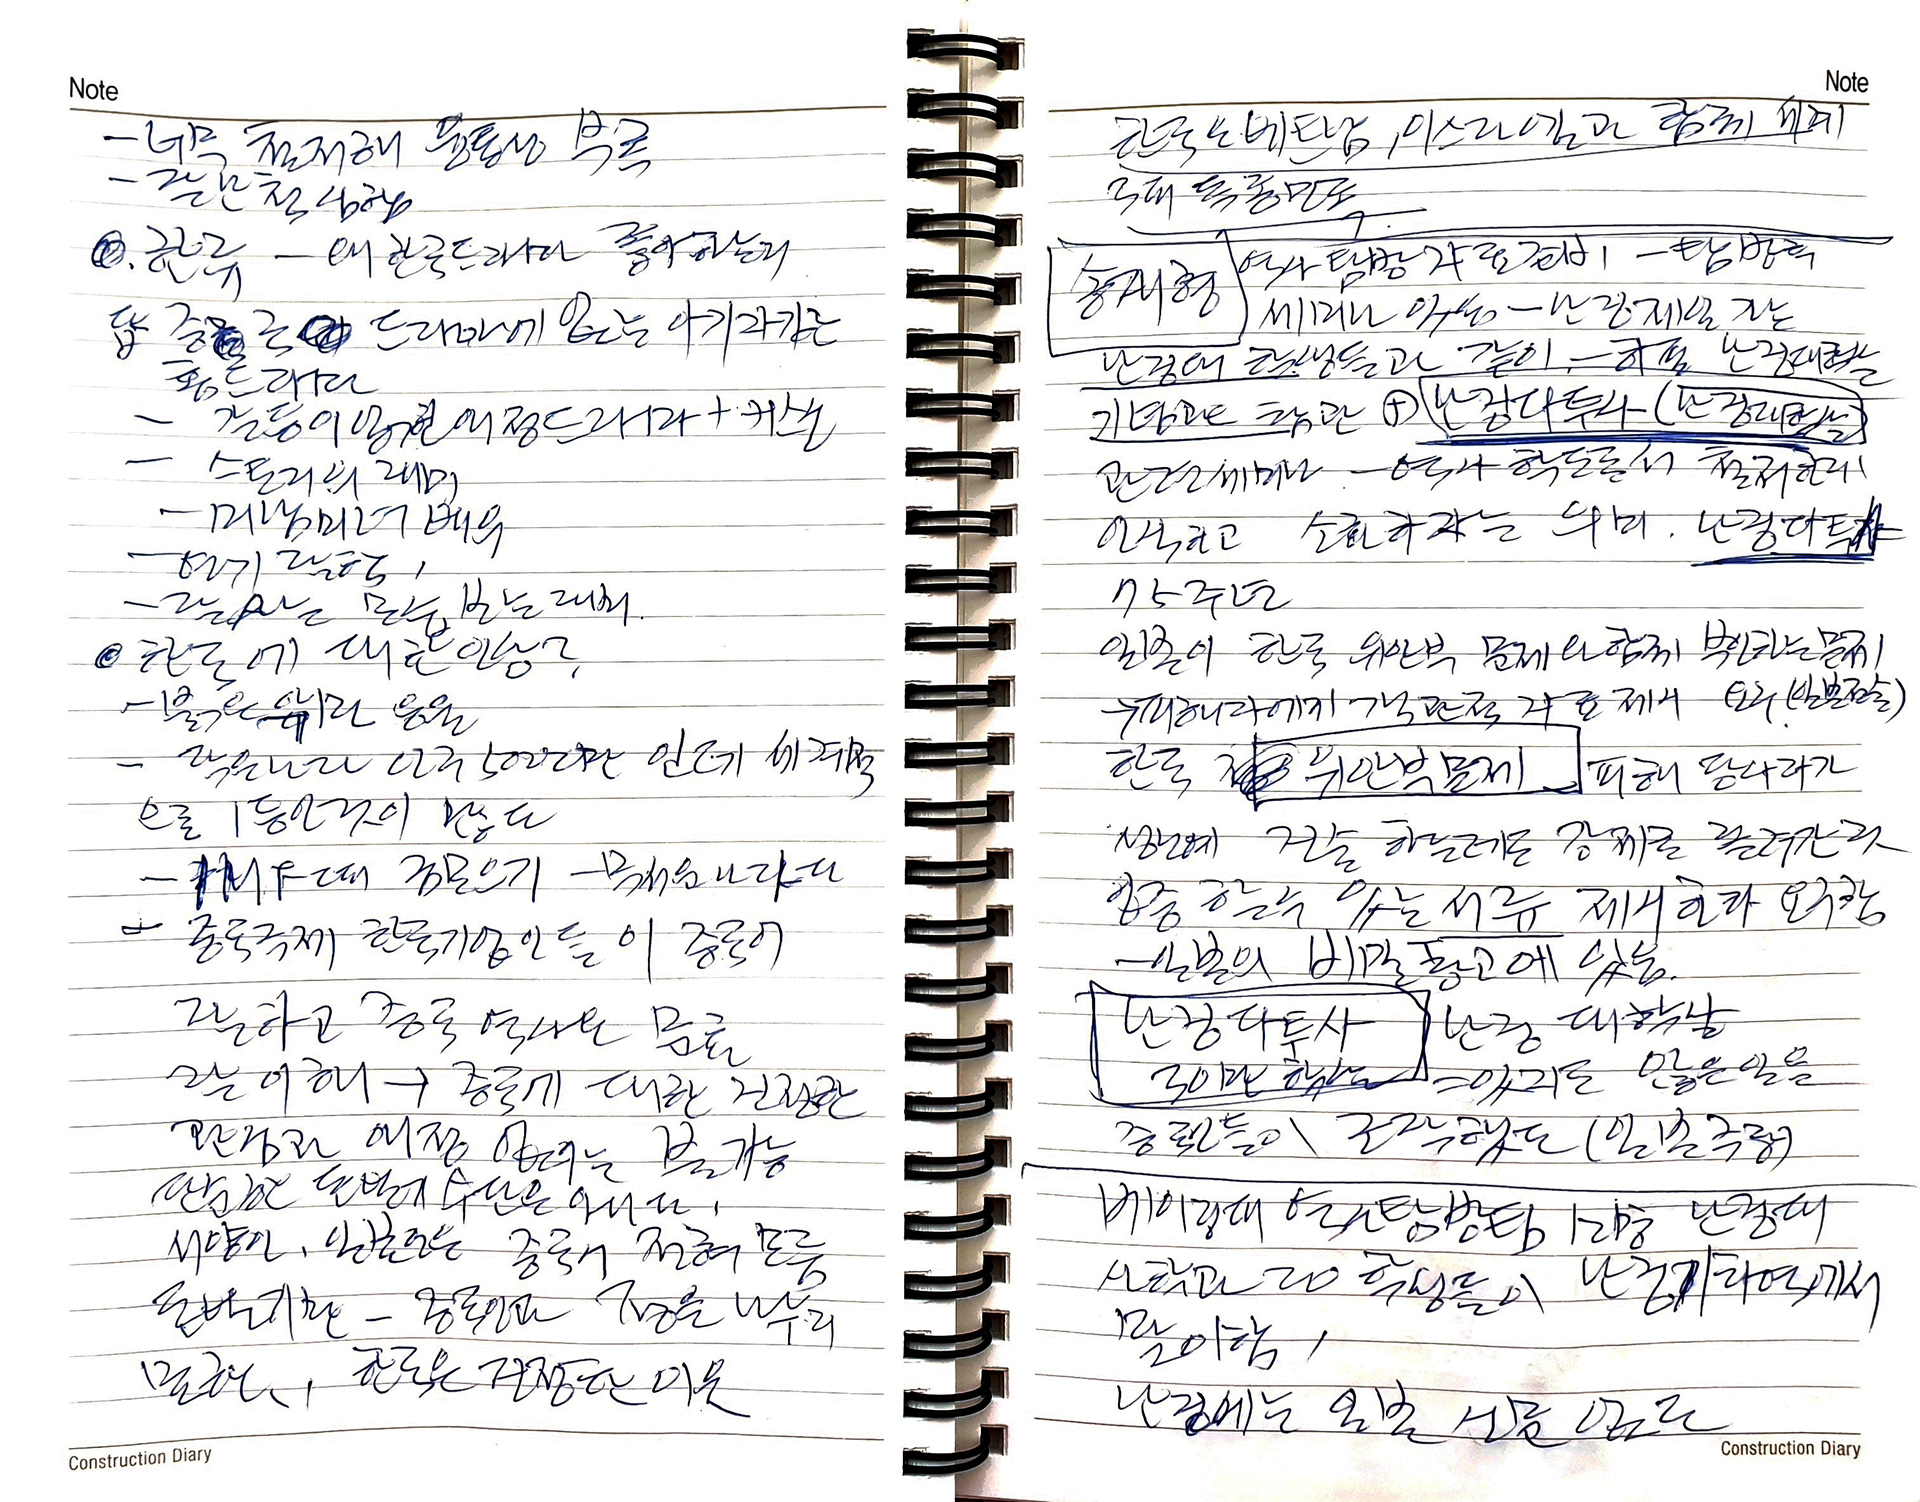 Note
- 너무 철저해 융통성 부족
- 결단력 심함
한류 - 왜 한국드라마 좋아하는지
답 중국 드라마에 없는 아기자기는
홈드라마
- 갈등이 있는 애정드라마 + 키스
- 스토리의 재미
- 미남미녀 배우
- 연기 잘함,
- 잘사는 모습 보는 재미.
한국에 대한 인상?
- 붉은 악마 응원
- 작은나라 인구 5000만 인데 세계적
으로 1등인것이 많다
- IMF 때 금모으기 - 무서운 나라다
- 중국주재 한국기업인들이 중국어
잘하고 중국 역사도 물론
잘 이해 → 중국에 대한 진정한
관심과 애정 없이는 불가능
단순한 돈벌이 수단은 아니다,
서양인, 일본인은 중국어 전혀 모름
돈벌기만 - 중국인과 정을 나누지
못한, 한국은 진정한 이웃
Construction Diary
Note
한국은 베트남, 이스라엘과 함께 세계
3대 독종민족
송시형 역사탐방 자료준비 - 탐방전
세미나 있음 - 난징제일 가는
난징대 학생들과 같이 - 하필 난징대학살
기념관도 탐관 + 난징다투사 (난징대학살)
관련세미나 - 역사학도로서 철저하게
인식하고 소화하자는 의미. 난징다투사
75주년
일본이 한국 위안부 문제와 함께 부인하는 문제
→ 피해자에게 객관적 자료 제시 요구 (일본전술)
한국 위안부문제 피해 당사자가
생전에 진술 하는데도 강제로 끌려간것
입증 할수 있는 서류 제시하라 요구함
- 일본의 비밀창고에 있음.
난징다투사 난징 대학살
30만 학살 - 있지도 않은일을
중국인들이 조작했다 (일본주장)
베이징대 역사탐방팀 1간호 난징대
사학과 20 학생들이 난징지역에서
많이함,
난징에는 일본 식당 없다
Construction Diary